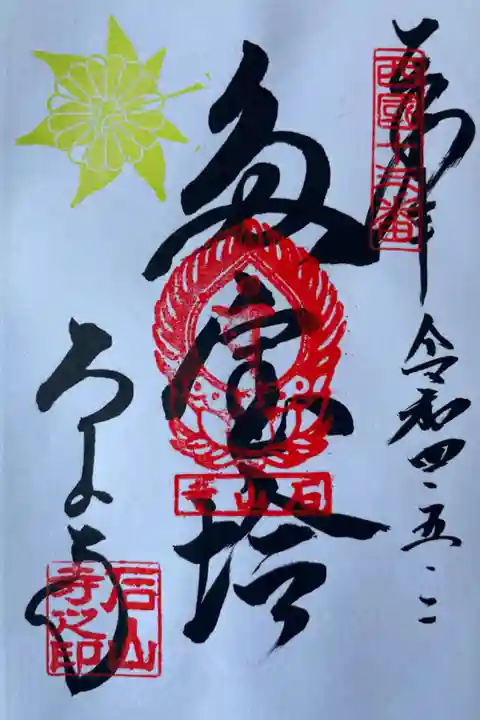 奉拝
西國十三番
令和四・五・二
多宝塔
石山寺
石山寺
石山寺之印